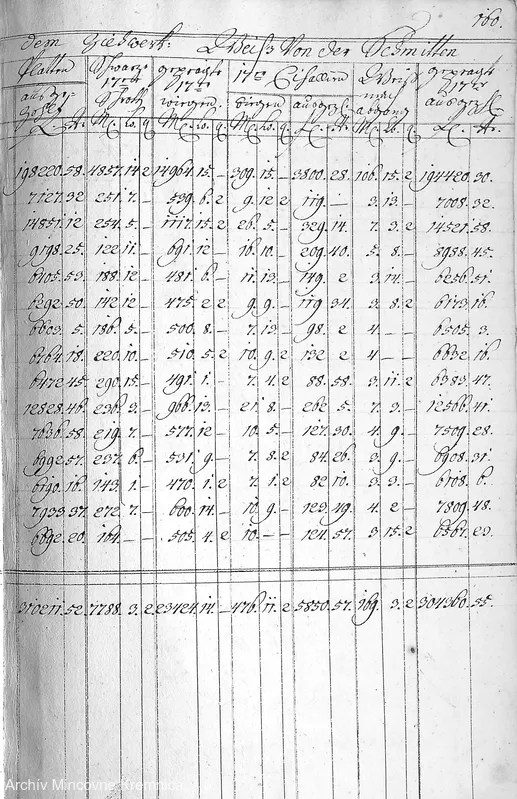 160.
dem Gießwerk: Weiß Von der Schmitten
Platten Schwarze gepragte 17er Cisalien Weiß gepragte
17er 17er mal 17er
ausge- Stroh wiegen. wiegen ausgez. abgang ausgez.
M. lo. q. M. lo. q. M. lo. q. M. lo. q.
198220. 58. 4857. 14 2 14964. 15. — 309. 15. — 3800. 28. 106. 15. 2 194420. 30.
7127. 32 251. 7. — 539. 6. 2 9. 12 2 119. — 3. 13. — 7008. 32.
14851. 12 254. 5. — 1117. 15. 2 26. 5. — 329. 14. 7. 3. 2 14521. 58.
9198. 25. 122. 11. — 691. 12 — 16. 10. — 209. 40. 5. 8. — 8988. 45.
6405. 53. 188. 12 — 481. 6. — 11. 13. — 149. 2 3. 14. — 6256. 51.
6292. 50. 142. 12 — 475. 2 2 9. 9. — 119 34. 3. 8. 2 6173. 16.
6603. 5. 186. 5. — 500. 8. — 7. 13. — 98. 2 4 — — 6505. 3.
6764. 18. 220. 10. — 510. 5. 2 10. 9. 2 132 2 4 — — 6632 16.
6472 45. 290. 15. — 491. 1. — 7. 4. 2 88. 58. 3. 11. 2 6383. 47.
12828. 46 236. 3. — 966. 13. — 21. 8. — 262 5. 7. 3. — 12566. 41.
7636. 58. 219. 7. — 577. 12 — 10. 5. — 127. 30. 4. 9. — 7509. 28.
6992. 57. 237. 6. — 531. 9. — 7. 8. 2 84. 26. 3. 9. — 6908. 31.
6190. 16. 143. 1. — 470. 1. 2 7. 1. 2 82 10. 3. 3. — 6108. 6.
7933. 37. 272 7. — 600. 14. — 10. 9. — 123. 49. 4. 2 — 7809. 48.
6692. 20. 164. — — 505. 4. 2 10. — — 124. 57. 3. 15. 2 6567. 23.
310211. 52. 7788. 3. 2 23424. 14. — 476. 11. 2 5850. 57. 169. 3. 2 304360. 55.
Archív Mincovne Kremnica